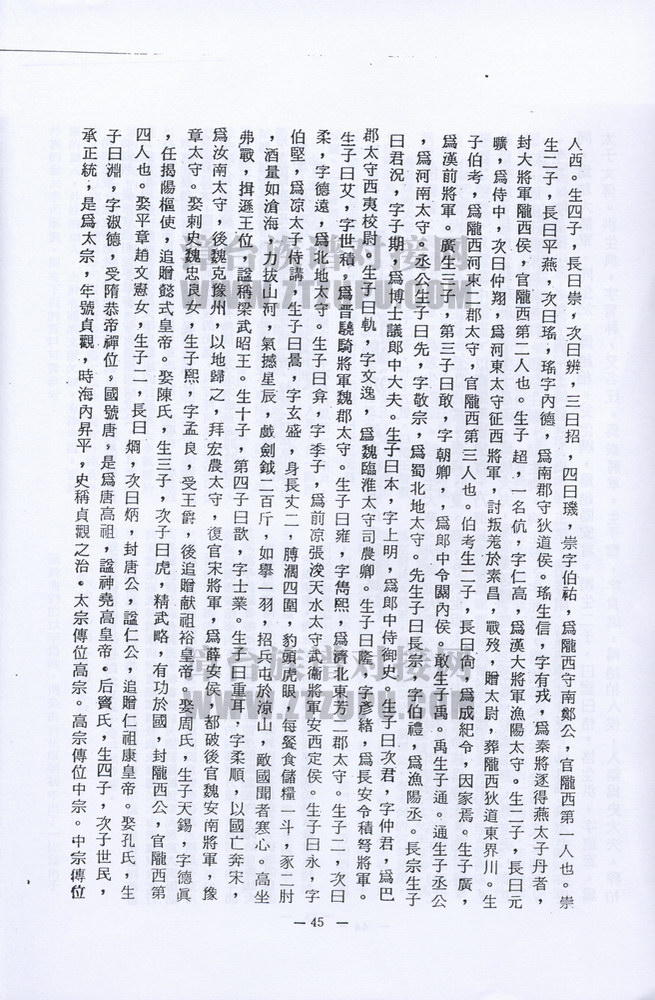 人西。生四子，長曰崇，次曰辨，三曰招，四曰璣，崇字伯祐，爲隴西守南鄭公，官隴西第一人也。崇
生二子，長曰平燕，次曰瑤，瑤字內德，爲南郡守狄道侯。瑤生信，字有戎，爲秦將逐得燕太子丹者，
封大將軍隴西侯，官隴西第二人也。生子超，一名伉，字仁高，爲漢大將軍漁陽太守。生二子，長曰元
曠，爲侍中，次曰仲翔，爲河東太守征西將軍，討叛羌於素昌，戰歿，贈太尉，葬隴西狄道東界川。生
子伯考，爲隴西河東二郡太守，官隴西第三人也。伯考生二子，長曰尚，爲成紀令，因家焉。生子廣，
爲漢前將軍。廣二子，第三子曰敢，字朝卿，爲郎中令關內侯，敢生子禹。禹生子通。通生子丞公
，爲河南太守。丞公生子曰先，字敬宗，爲蜀北地太守。先生子曰長宗，字伯禮，爲漁陽丞。長宗生子
曰君況，字子期，爲博士議郎中大夫。生子曰本，字上明，爲郎中侍御史。生子曰次君，字仲君，爲巴
郡太守西夷校尉。生子曰軌，字文逸，爲魏臨淮太守司農卿。生子曰隆，字彥緒，爲長安令積弩將軍。
生子曰艾，字世積，爲晋驍騎將軍魏郡太守。生子曰雍，字儁熙，爲濟北東芳二郡太守。生子二，次曰
柔，字德遠，爲北地太守。生子曰弇，字季子，爲前凉張浚天水太守武衛將軍安西定侯。生子曰永，字
伯堅，爲凉太子侍講，生子曰暠，字玄盛，身長丈二，膊濶四圍，豹頭虎眼，每餐食儲糧一斗，豕二肘
，酒量如滄海，力拔山河，氣撼星辰，戲劍鉞二百斤，如舉一羽，招兵屯於凉山，敵國聞者寒心。高坐
弗戰，揖遜王位，諡稱梁武昭王。生十子，第四子曰歆，字士業。生子曰重耳，字柔順，以國亡奔宋，
爲汝南太守，後魏克豫州，以地歸之，拜宏農太守，復官宋將軍，爲薛安侯，都破後官魏安南將軍，豫
章太守。娶刺史魏忠良女，生子熙，字孟良，受王爵，後追贈献祖裕皇帝。娶周氏，生子天錫，字德眞
，任揭陽樞使，追贈懿式皇帝。娶陳氏，生三子，次子曰虎，精武略，有功於國，封隴西公，官隴西第
四人也。娶平章趙文憲女，生子二，長曰焵，次曰炳，封唐公，諡仁公，追贈仁祖康皇帝。娶孔氏，生
子曰淵，字淑德，受隋恭帝禪位，國號唐，是爲唐高祖，諡神堯高皇帝。后竇氏，生四子，次子世民，
承正統，是爲太宗，年號貞觀，時海內昇平，史稱貞觀之治。太宗傳位高宗。高宗傳位中宗。中宗傳位
— 45 —
漳台族谱对接网
WWW.ZTZUPU.COM
漳台族谱对接网
WWW.ZTZUPU.COM